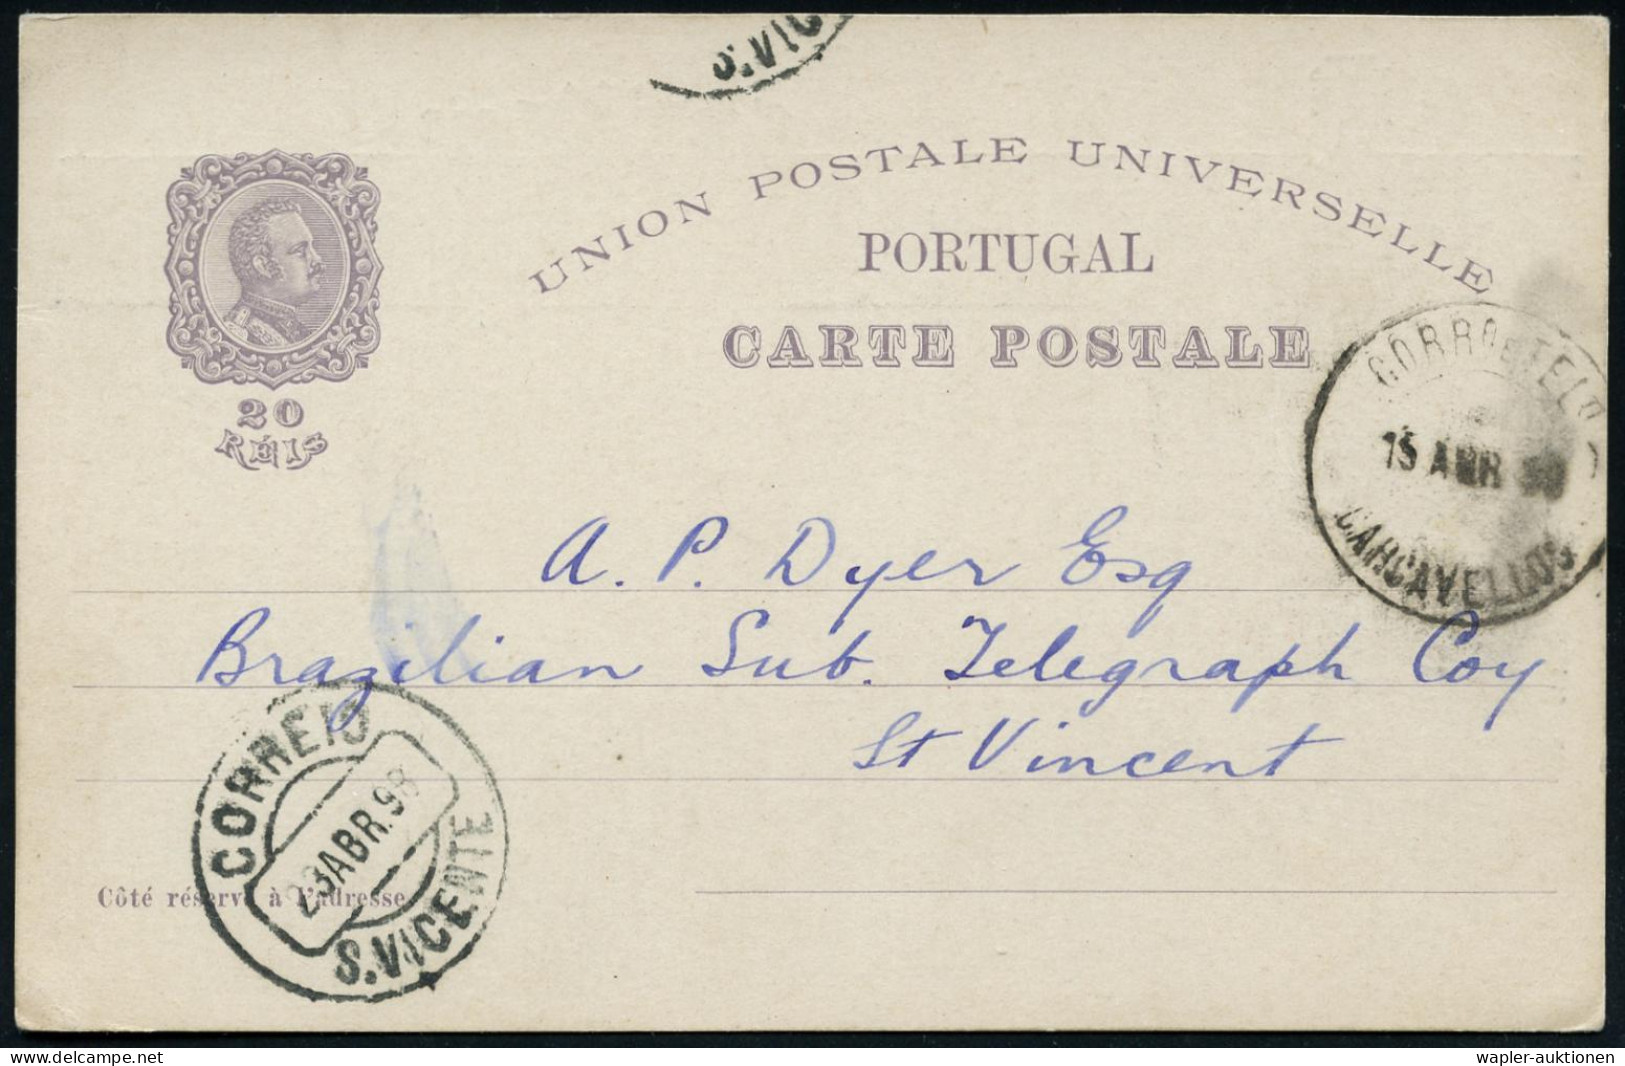 S.VIC
UNION POSTALE UNIVERSELLE
PORTUGAL
CARTE POSTALE
20
RÉIS
CORRO E TELO
15 ABR 98
CARCAVELLOS
A. P. Dyer Esq
Brazilian Sub. Telegraph Coy
St Vincent
CORREIO
23 ABR. 98
S. VICENTE
Côté réservé à l'adresse
delcampe.net
wapler-auktionen